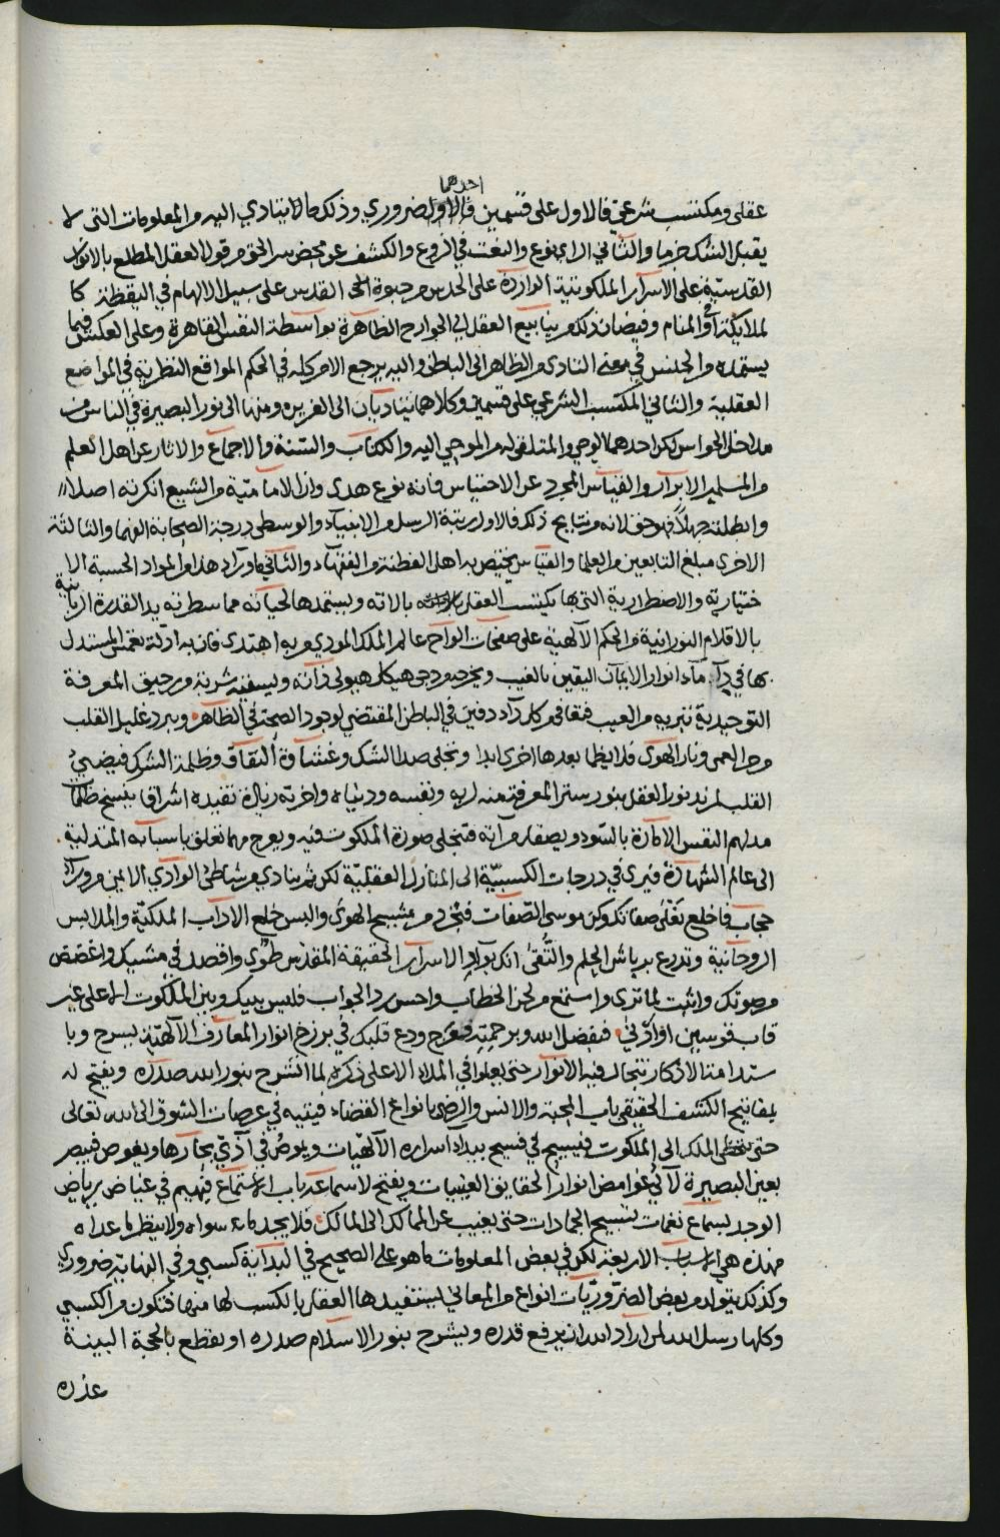 احدهما
عقلي ومكتسب شرعي فالاول على قسمين فالاول ضروري وذلك مالا يتنادي اليه من المعلومات التي لا
يقبل الشك جزما والثاني الراي نوع والنفث في الروع والكشف عن محض سر الحق من قول العقل المطلع بالانوار
القدسية على الاسرار الملكوتية الواردة على الحدس من القدس على سبيل الالهام في اليقظة كا
لملايكة او المنام وفيضان ذلك من ينابيع العقل الى الجوارح الظاهرة بواسطة النفس القاهرة وعلى العكس فيما
يستمده من الجنس في معنى التنادي من الظاهر الى الباطن واليه يرجع الامر كله في الحكم المواقع النظرية في المواضع
العقلية والثاني المكتسب الشرعي على قسمين وكلاهما يتناديان الى الغريزه ومنها الى نور البصيرة في الناس من
مداخل الحواس لكن احدهما الوحي والمتلقي له من الموحي اليه والكتاب والسنة والاجماع والاثار عن اهل العلم
من المسلمين الابرار والقياس المجرد عن الاحتياس فانه نوع هدى وان الامامية من الشيع انكرته اصلا
وابطلته جهلا فهو حق لانه من نتايج ذلك فالاولى رتبة الرسل من الانبياء والوسطى درجة الصحابة الفهما والثالثة
الاخرى مبلغ التابعين من العلما والقياس يختص به اهل الفطنة من الفقهاء والثاني ماوراء هذا من المواد الحسية الا
ختيارية والاضطرارية التي بها يكتسب العقل بالاته ويستمدها لحياته مما سطرته يد القدرة الربانية
بالاقلام النورانية من الحكم الالهية على صفحات الواح عالم الملك الموري وبه اهتدى فان به ادلة تغمس المستدل
بها في دأماء انوار الايمان اليقين بالغيب ويخرجه من دجى هيكل هيولى ذاته ويسقيه شربة من رحيق المعرفة
التوحيدية تبريه من العيب فتعافى من كل داء دفين في الباطن المقتضي لوجود الصحة في الظاهر ويبرد غليل القلب
من حر العمى ونار الهوى فلا يظما بعدها اخرى ابدا وتجلى صدا الشك وغشاوة النفاق وظلمة الشرك فيضيئ
القلب لمزيد نور العقل بنور ستر المعرفة منه لربه ونفسه ودنياه واخريه زيادة تفيده اشراق ينسخ ظلمات
مدلهم النفس الامارة بالسوء ويصقل مرآته فتتجلى صورة الملكوت فيه ويعرج مهما تعلق باسبابه المتدلية
الى عالم الشهادة فيرى في درجات الكسبية الى المنازل العقلية لكن ثم ينادي من شاطئ الوادي الايمن من وراء
حجاب فاخلع نعلي صفاتك وكن موسى الصفات فتجرد من مشيح الهوى والبس خلع الاداب الملكية والملابس
الروحانية وتدرع برياش الحلم والتقى انك بواد الاسرار الحقيقة المقدس طوى واقصد في مشيك واغضض
من صوتك واثبت لما ترى واستمع من لحن الخطاب واحسن رد الجواب فليس بينك وبين الملكوت الاعلى غير
قاب قوسين او ادنى فبفضل الله وبرحمته فعرج ودع قلبك في برزخ انوار المعارف الالهية يسرح وبا
ستدامة الاذكار تنجال فيه الانوار حتى يعلوا في الملاء الاعلى ذكره لما انشرح بنور الله صدره ويفتح له
بمفاتيح الكشف الحقيقي باب المحبة والانس والرضى بانواع القضاء فيتيه في عرصات الشوق الى الله تعالى
حتى يتخطى الملك الى الملكوت فيسيح في فسيح بيداء اسراره الالهيات ويعوم في آذي بحارها ويغوص فيبصر
بعين البصيرة لآلي غوامض انوار الحقايق الغيبيات ويفتح لاسماعه باب الاستماع فيهيم في غياض رياض
الوجد بسماع نغمات تسبيح الجمادات حتى يغيب عن الممالك الى المالك فلا يجد ماء سواه ولا ينظر ما عداه
فهذه هي الاسباب الاربعة لكن في بعض المعلومات ما هو على الصحيح في البداية كسبي وفي النهاية ضروري
وكذلك يتولد من بعض الضروريات انواع من المعاني يستفيدها العقل بالكسب لها منها فتكون من الكسبي
وكلها رسل الله لمن اراد الله ان يرفع قدره ويشرح بنور الاسلام صدره او يقطع بالحجة البينة
عذره